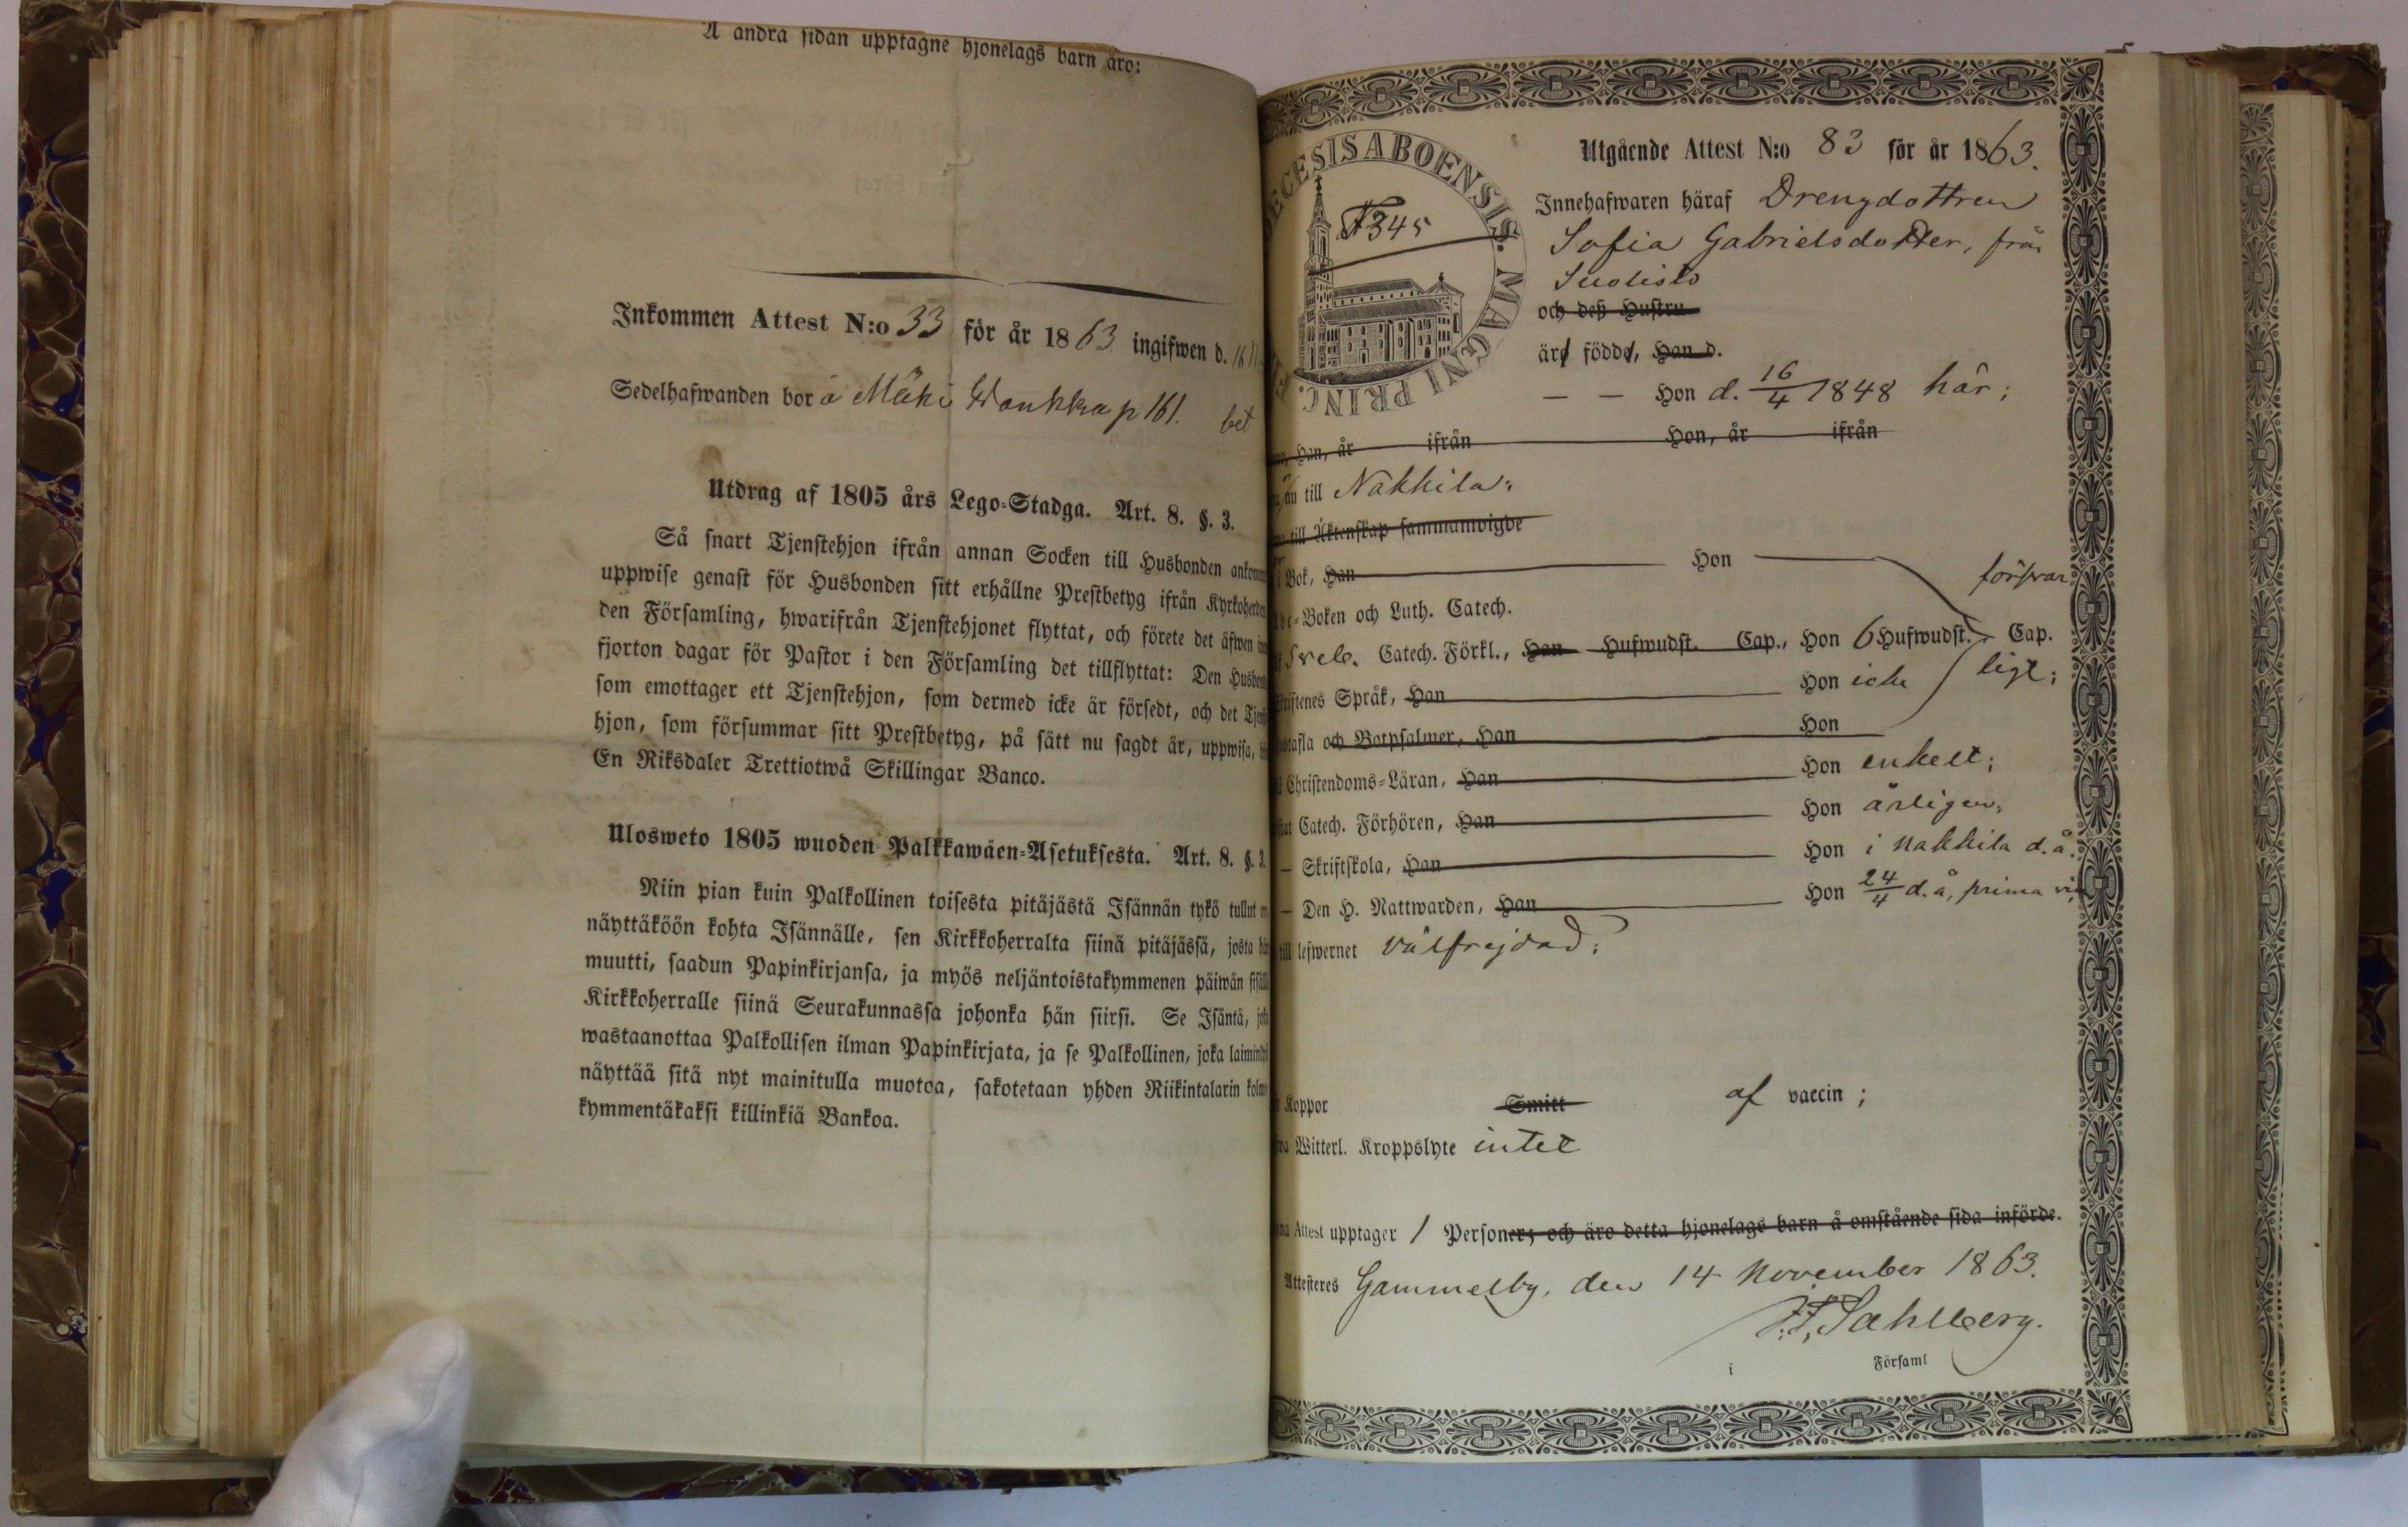 Å andra sidan upptagne hjonelags barn äro:
Inkommen Attest N:o 33 för år 1863 ingifwen d.
Sedelhafwanden bor å Mäki Wonkka p 161. bet
Utdrag af 1805 års Lego-Stadga. Art. 8. §. 3.
Så snart Tjenstehjon ifrån annan Socken till Husbonden
uppwise genast för Husbonden sitt erhållne Prestbetyg ifrån
den Församling, hwarifrån Tjenstehjonet flyttat, och förete det äfwen
fjorton dagar för Pastor i den Församling det tillflyttat: Den
som emottager ett Tjenstehjon, som dermed icke är försedt, och det
hjon, som försummar sitt Prestbetyg, på sätt nu sagdt är, uppwisa,
En Riksdaler Trettiotwå Skillingar Banco.
Ulosweto 1805 wuoden Palkkawäen-Asetuksesta. Art. 8. §. 3.
Niin pian kuin Palkollinen toisesta pitäjästä Isännän tykö tullut
näyttäköön kohta Isännälle, sen Kirkkoherralta siinä pitäjässä, josta
muutti, saadun Papinkirjansa, ja myös neljäntoistakymmenen päiwän
Kirkkoherralle siinä Seurakunnassa johonka hän siirsi. Se Isäntä,
wastaanottaa Palkollisen ilman Papinkirjata, ja se Palkollinen, joka
näyttää sitä nyt mainitulla muotoa, sakotetaan yhden Riikintalarin
kymmentäkaksi killinkiä Bankoa.
ECESIS ABOENSIS. MAGNI PRINC.
345
Utgående Attest N:o 83 för år 1863.
Innehafwaren häraf Drengdottren
Sofia Gabrielsdotter, från
Suolisto
och deß Hustru
äro födde, Han d.
— — Hon d. 16/4 1848 här;
Han, år ifrån Hon, år ifrån
nu till Nakkila;
till Äktenskap sammanwigde
i Bok, Han Hon försvar
Boken och Luth. Catech.
Sveb. Catech. Förkl., Han Hufwudst. Cap., Hon 6 Hufwudst. Cap.
Språk, Han Hon icke ligt;
och Botpsalmer, Han Hon
Christendoms-Läran, Han Hon enkelt;
Catech. Förhören, Han Hon årligen;
— Skriftskola, Han Hon i Nakkila d. å.
— Den H. Nattwarden, Han Hon 24/4 d. å, prima
till lefwernet välfrejdad;
Koppor Smitt af vaccin;
Witterl. Kroppslyte intet
Attest upptager 1 Personer; och äro detta hjonelags barn å omstående sida införde.
Attesteres Gammelby, den 14 November 1863.
F. F. Sahlberg.
i Församl